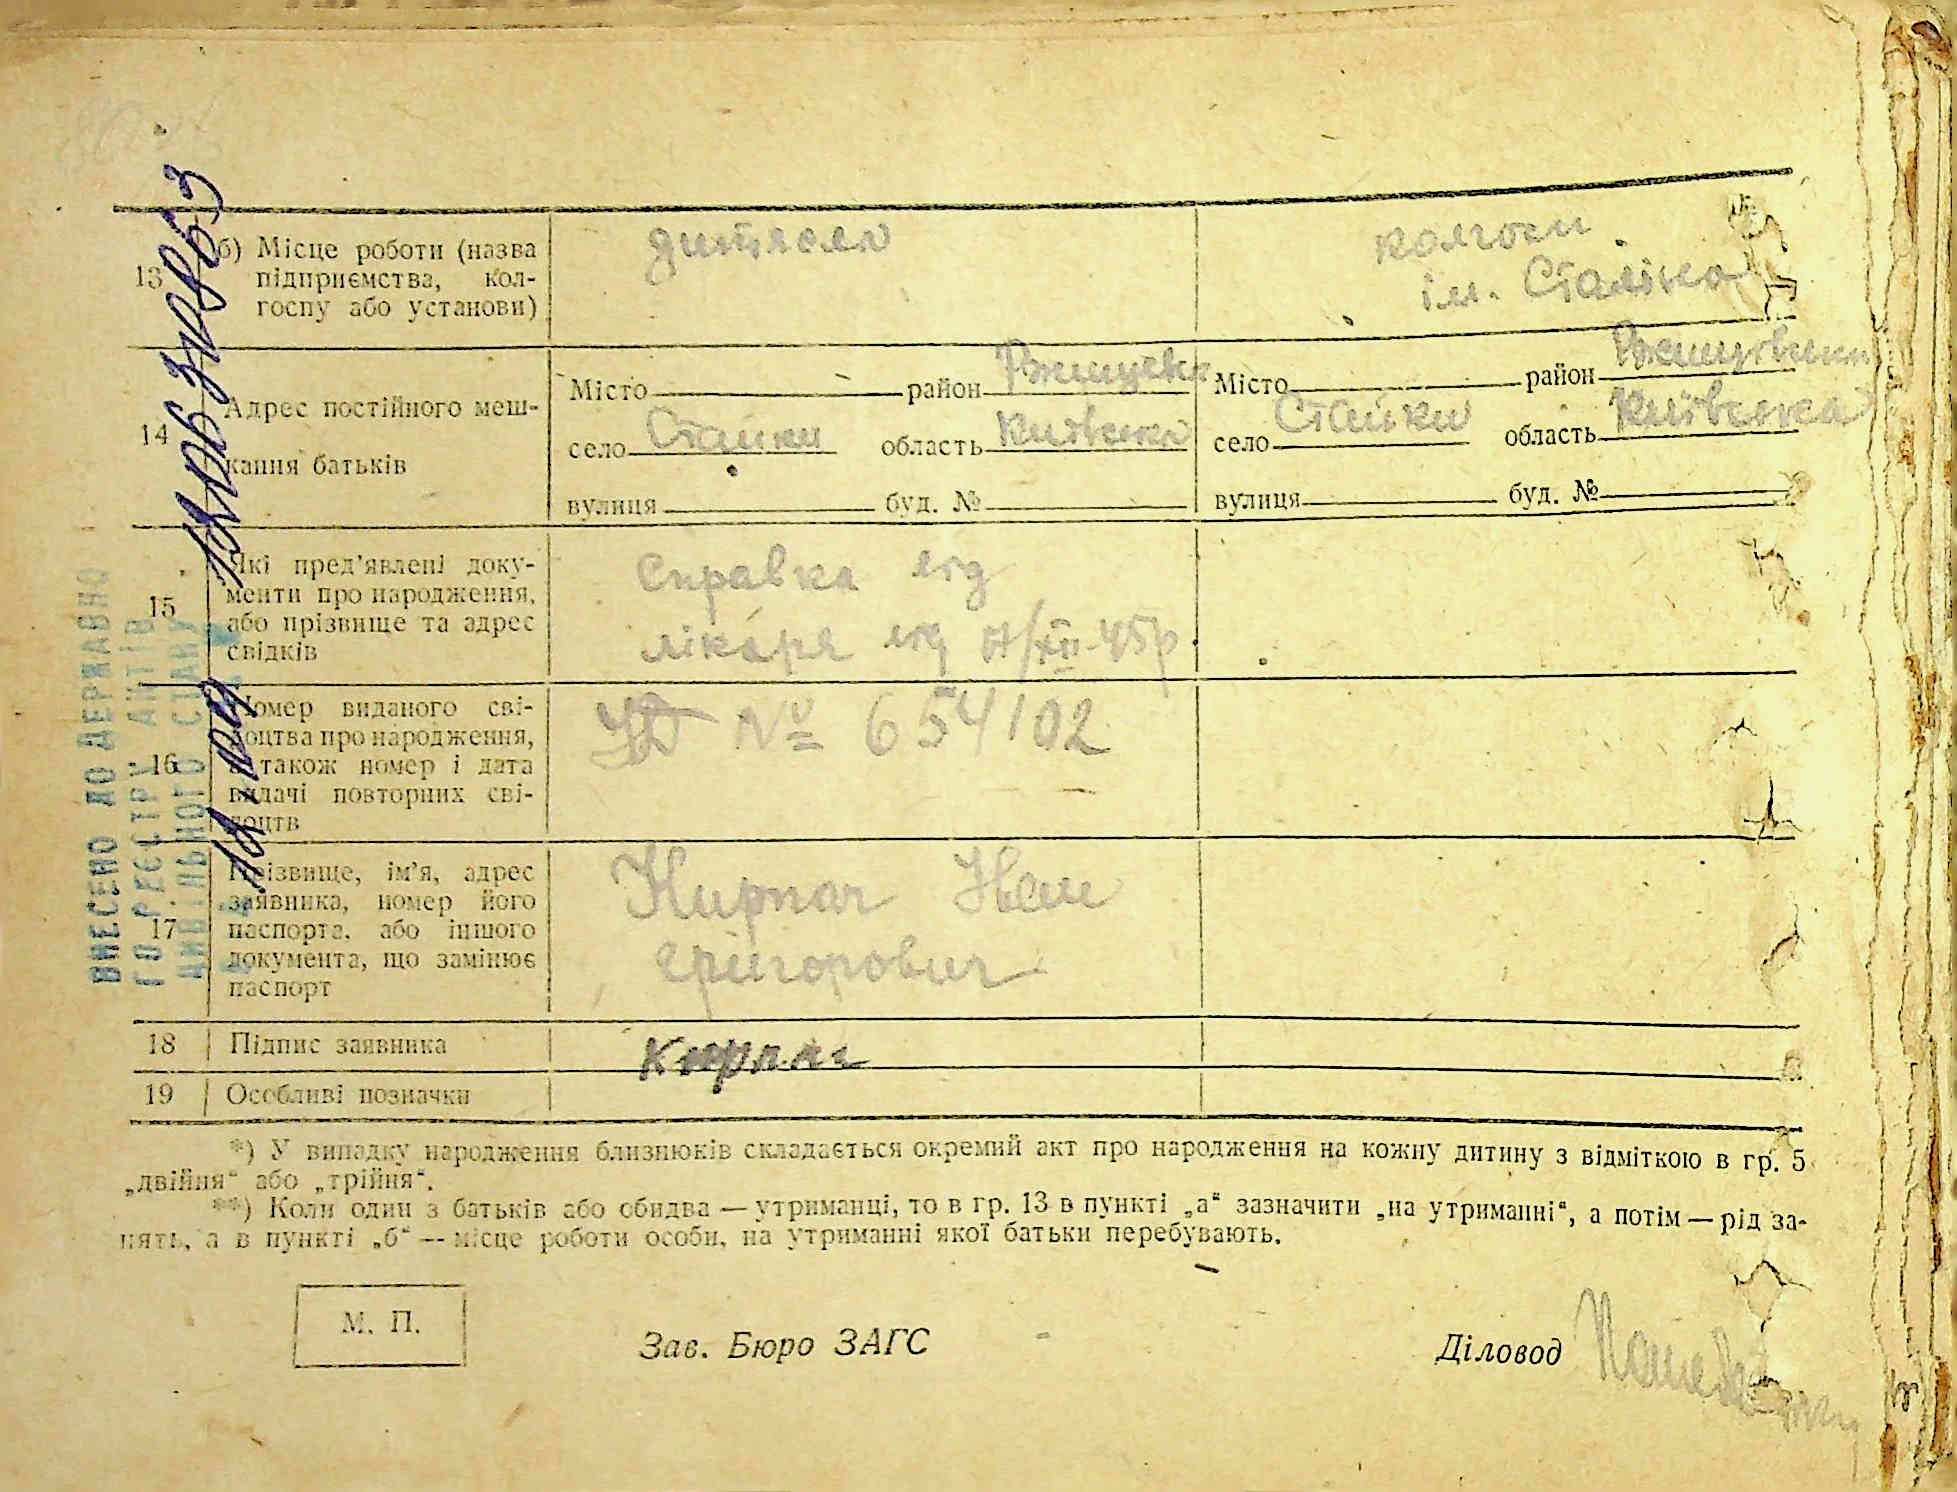 13
б) Місце роботи (назва
підприємства, кол-
госпу або установи)
дитясла
колгосп
ім. Сталіна
14
Адрес постійного меш-
кання батьків
Місто район Ржищевс
село Стайки область Київська
вулиця буд. №
Місто район Ржищівський
село Стайки область Київська
вулиця буд. №
15
Які пред'явлені доку-
менти про народження,
або прізвище та адрес
свідків
Справка від
лікаря від /XII-45р
16
Номер виданого сві-
доцтва про народження,
а також номер і дата
видачі повторних сві-
доцтв
№ 654102
17
Прізвище, ім'я, адрес
заявника, номер його
паспорта, або іншого
документа, що замінює
паспорт
Кирпач Іван
Грігорович
18 Підпис заявника
Кирпач
19 Особливі позначки
*) У випадку народження близнюків складається окремий акт про народження на кожну дитину з відміткою в гр. 5
„двійня“ або „трійня“.
**) Коли один з батьків або обидва — утриманці, то в гр. 13 в пункті „а“ зазначити „на утриманні“, а потім — рід за-
нять, а в пункті „б“ — місце роботи особи, на утриманні якої батьки перебувають.
М. П.
Зав. Бюро ЗАГС
Діловод
ВНЕСЕНО ДО ДЕРЖАВНО
ГО РЕЄСТРУ АКТІВ
ЦИВІЛЬНОГО СТАНУ